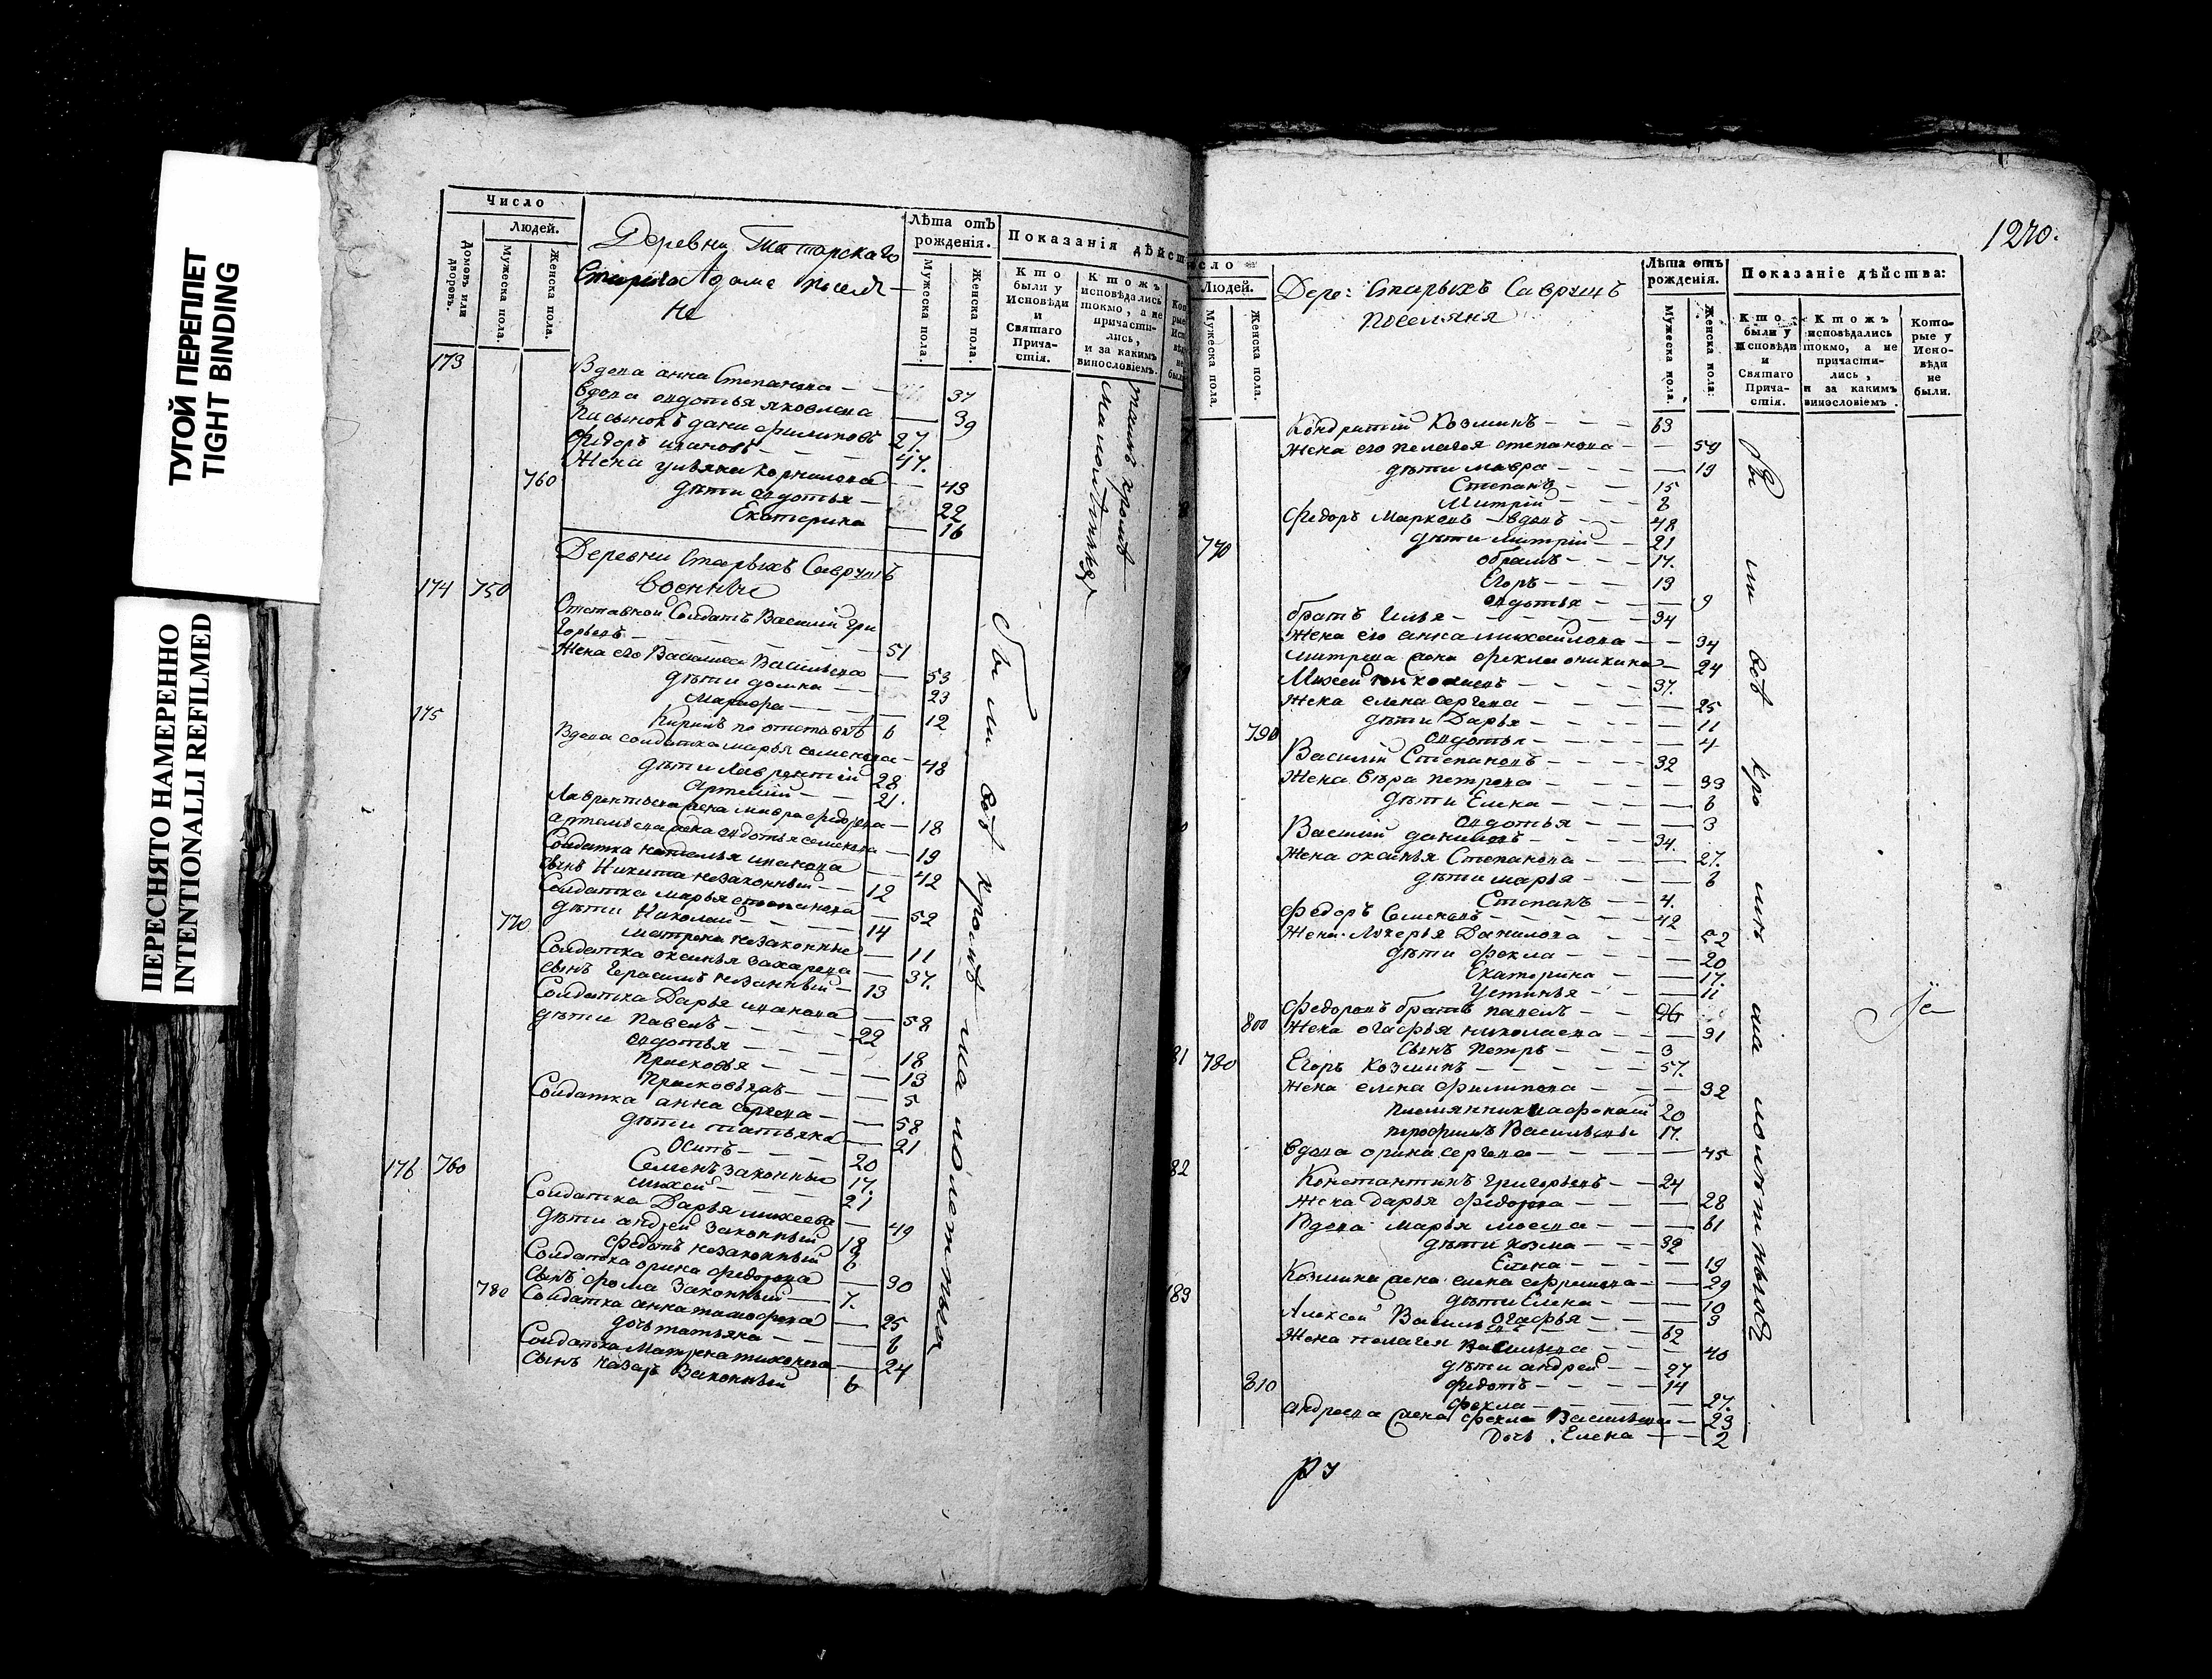 ТУГОЙ ПЕРЕПЛЕТ
TIGHT BINDING
ПЕРЕСНЯТО НАМЕРЕННО
INTENTIONALLI REFILMED
Число
Людей.
Домовъ или дворовъ.
Мужеска пола.
Женска пола.
Деревни Татарскаго
Стараго Адама поселя-
не
Лѣта отъ рожденія.
Мужеска пола.
Женска пола.
Показанія дѣйст
Кто были у Исповѣди и Святаго Причастія.
Ктожъ исповѣдались токмо, а не причастились, и за какимъ винословіемъ.
173
Вдова анна Степанова — 37
Вдова авдотья яковлева — 39
27.
Федоръ ивановъ — 47.
Жена ульяна корнилова — 43
760
дѣти авдотья — 22
Екатерина — 16
Деревни Старыхъ Саврушъ
Военные
174 750
Отставной Солдатъ Василій Гри
горьевъ — 51
Жена его Василиса Васильева — 53
дѣти домна — 23
Марфа — 12
175
Кирилъ по отставкѣ 6
Вдова солдатка марья семенова — 48
дѣти Лаврентій 28
Артемій — 21.
Лаврентьева жена мавра федорова — 18
артемьева жена авдотья семенова — 19
Солдатка наталья иванова — 42
сынъ Никита незаконный — 12
Солдатка марья степанова — 52
дѣти Николай — 14
770
матрена незаконные — 11
Солдатка оксинья захарова — 37.
сынъ Герасимъ незаконный — 13
Солдатка Дарья иванова — 58
дѣти Павелъ — 22
авдотья — 18
Прасковья — 13
5
Солдатка анна сергеева — 58
дѣти татьяна — 21
Осипъ — 20
176 760
Семенъ законные 17.
михей — 21
Солдатка Дарья михеева — 49
дѣти андрей законный 18
федотъ незаконный 6
Солдатка орина федорова — 30
Сынъ фома законный — 7.
780
Солдатка анна тимофеева — 25
дочь татьяна — 6
Солдатка Матрена тихонова — 24
Сынъ назаръ законный 6
Были всѣ кромѣ
1270.
Людей.
Мужеска пола.
Женска пола.
Дере: Старыхъ Саврушъ
поселяня
Лѣта отъ рожденія.
Мужеска пола.
Женска пола:
Показаніе дѣйства:
Кто были у Исповѣди и Святаго Причастія.
Ктожъ исповѣдались токмо, а не причастились, и за какимъ винословіемъ.
Которые у Исповѣди не были.
Кондратій Козминъ — 63
Жена его пелагея степанова — 59
дѣти мавра — 19
Степанъ — 15
Митрій — 8
Федоръ Марковъ — вдовъ — 48
770
дѣти митрій — 21
обрамъ — 17.
Егоръ — 13
авдотья — 9
братъ Илья — 34
Жена его анна михайлова — 34
митрева жена фекла оникина — 24
37.
Жена елена сергеева — 25
дѣти Дарья — 11
790
авдотья — 4
Василій Степановъ — 32
Жена вѣра петрова — 33
дѣти Елена — 6
авдотья — 3
Василій даниловъ — 34.
Жена оксинья Степанова — 27.
дѣти марья — 6
Степанъ — 4.
Федоръ Семеновъ — 42
Жена Лукерья Данилова — 52
дѣти фекла — 20
Екатерина — 17.
Устинья — 11
Федоровъ братъ павелъ —
800
Жена огафья николаева — 31
сынъ Петръ — 3
81 780
Егоръ Козминъ — 57.
Жена елена филипова — 32
20
трофимъ Васильевы 17.
Вдова орина сергеева — 45
82
Константинъ григорьевъ — 24
Жена дарья федорова — 28
Вдова марья моисеева — 61
дѣти козма — 32
Елена — 19
Козмина жена елена ефремова — 29
183
дѣти Елена — 10
огафья — 3
Алексей Васильевъ — 62
Жена пелагея васильева — 40
дѣти андрей — 27
810
Федотъ — 14
Фекла — 27.
андреева жена фекла Васильева — 23
дочь Елена — 2
Были всѣ кромѣ малолѣтныхъ